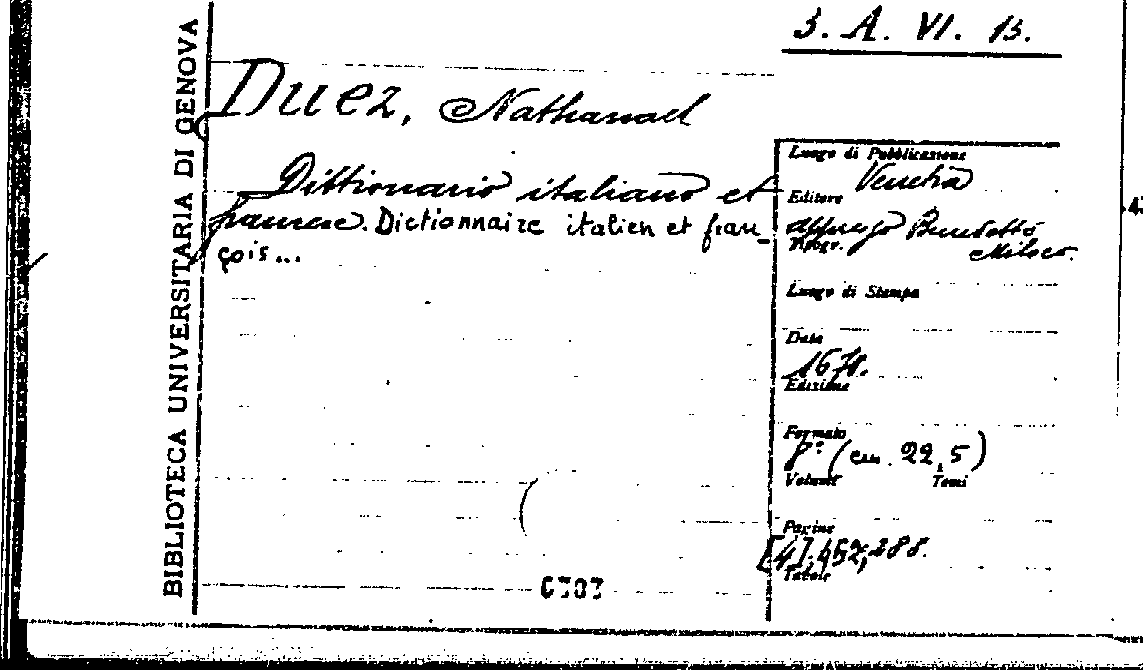 3. A. VI. 13.
BIBLIOTECA UNIVERSITARIA DI GENOVA
Duez, Nathanael
Dittionario italiano et
francese. Dictionnaire italien et fran-
çois...
Luogo di Pubblicazione
Venetia
Editore
appresso Benedetto
Miloco.
Tipogr.
Luogo di Stampa
Data
1678.
Edizione
Formato
8° (cm. 22,5)
Volumi Tomi
Pagine
[4], 452, 288.
Tavole